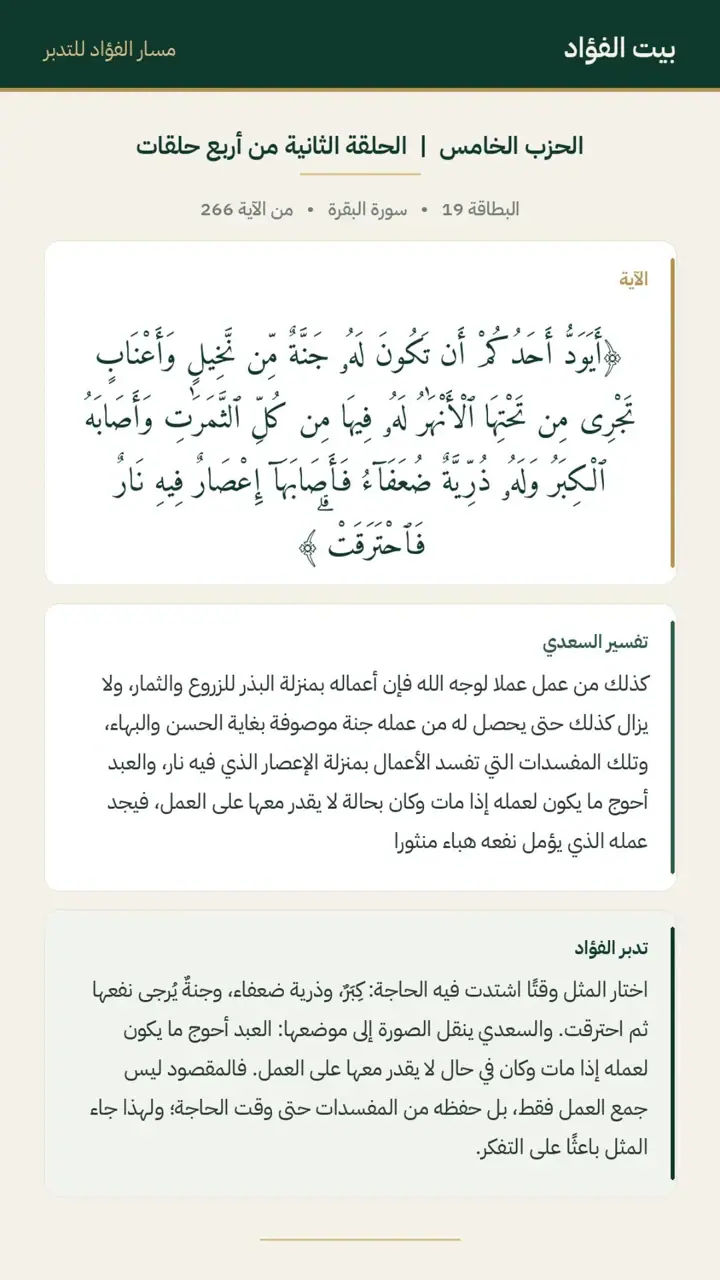 بيت الفؤاد
مسار الفؤاد للتدبر
الحزب الخامس | الحلقة الثانية من أربع حلقات
البطاقة 19 • سورة البقرة • من الآية 266
الآية
﴿أَيَوَدُّ أَحَدُكُمْ أَن تَكُونَ لَهُۥ جَنَّةٌ مِّن نَّخِيلٍ وَأَعْنَابٍ
تَجْرِى مِن تَحْتِهَا ٱلْأَنْهَٰرُ لَهُۥ فِيهَا مِن كُلِّ ٱلثَّمَرَٰتِ وَأَصَابَهُ
ٱلْكِبَرُ وَلَهُۥ ذُرِّيَّةٌ ضُعَفَآءُ فَأَصَابَهَآ إِعْصَارٌ فِيهِ نَارٌ
فَٱحْتَرَقَتْ ۗ﴾
تفسير السعدي
كذلك من عمل عملا لوجه الله فإن أعماله بمنزلة البذر للزروع والثمار، ولا
يزال كذلك حتى يحصل له من عمله جنة موصوفة بغاية الحسن والبهاء،
وتلك المفسدات التي تفسد الأعمال بمنزلة الإعصار الذي فيه نار، والعبد
أحوج ما يكون لعمله إذا مات وكان بحالة لا يقدر معها على العمل، فيجد
عمله الذي يؤمل نفعه هباء منثورا
تدبر الفؤاد
اختار المثل وقتًا اشتدت فيه الحاجة: كِبَرٌ، وذرية ضعفاء، وجنةٌ يُرجى نفعها
ثم احترقت. والسعدي ينقل الصورة إلى موضعها: العبد أحوج ما يكون
لعمله إذا مات وكان في حال لا يقدر معها على العمل. فالمقصود ليس
جمع العمل فقط، بل حفظه من المفسدات حتى وقت الحاجة؛ ولهذا جاء
المثل باعثًا على التفكر.